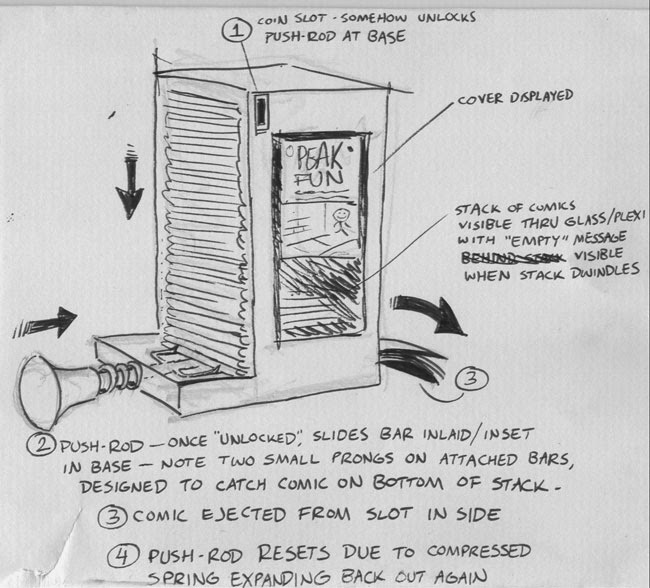 ① COIN SLOT - SOMEHOW UNLOCKS
PUSH-ROD AT BASE
COVER DISPLAYED
PEAK
FUN
STACK OF COMICS
VISIBLE THRU GLASS/PLEXI
WITH "EMPTY" MESSAGE
BEHIND STACK VISIBLE
WHEN STACK DWINDLES
③
② PUSH-ROD — ONCE "UNLOCKED", SLIDES BAR INLAID/INSET
IN BASE — NOTE TWO SMALL PRONGS ON ATTACHED BARS,
DESIGNED TO CATCH COMIC ON BOTTOM OF STACK -
③ COMIC EJECTED FROM SLOT IN SIDE
④ PUSH-ROD RESETS DUE TO COMPRESSED
SPRING EXPANDING BACK OUT AGAIN